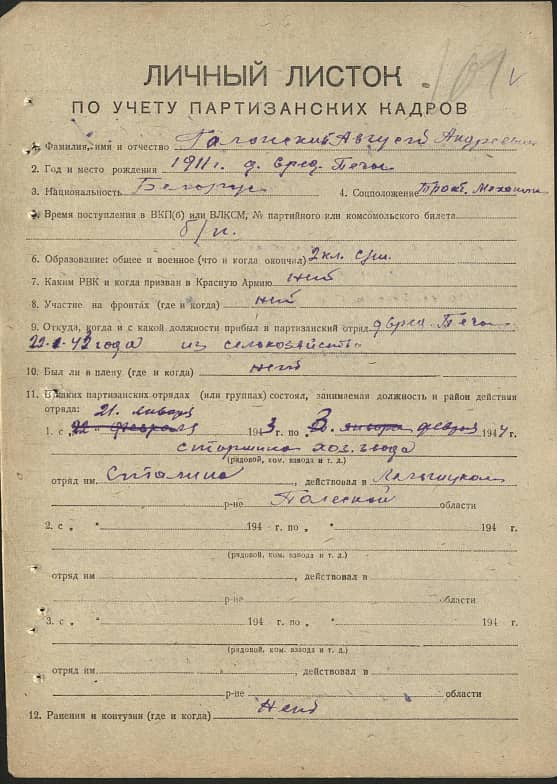 109 v
ЛИЧНЫЙ ЛИСТОК
ПО УЧЕТУ ПАРТИЗАНСКИХ КАДРОВ
1. Фамилия, имя и отчество Август Андреевич
2. Год и место рождения 1911 г. д. Бред. Печи
3. Национальность Белорус 4. Соцположение Тракт. Механик
5. Время поступления в ВКП(б) или ВЛКСМ, № партийного или комсомольского билета
б/п.
6. Образование: общее и военное (что и когда окончил) 2 кл. с/ш.
7. Каким РВК и когда призван в Красную Армию нет
8. Участие на фронтах (где и когда) нет
9. Откуда, когда и с какой должности прибыл в партизанский отряд д Бред. Печи
22-1-43 года из селькозяйства
10. Был ли в плену (где и когда) нет
11. В каких партизанских отрядах (или группах) состоял, занимаемая должность и район действия
отряда: 21. января
1. с 22 " февраля 1943 г. по 3 января февраля 1944 г.
старшина хоз. взвода
(рядовой, ком. взвода и т. д.)
отряд им. Сталина, действовал в
р-не Полеской области
2. с " " 194 г. по " " 194 г.
(рядовой, ком. взвода и т. д.)
отряд им , действовал в
р-не области
3. с " " 194 г. по " " 194 г.
(рядовой, ком. взвода и т. д.)
отряд им. , действовал в
р-не области
12. Ранения и контузии (где и когда) Нет